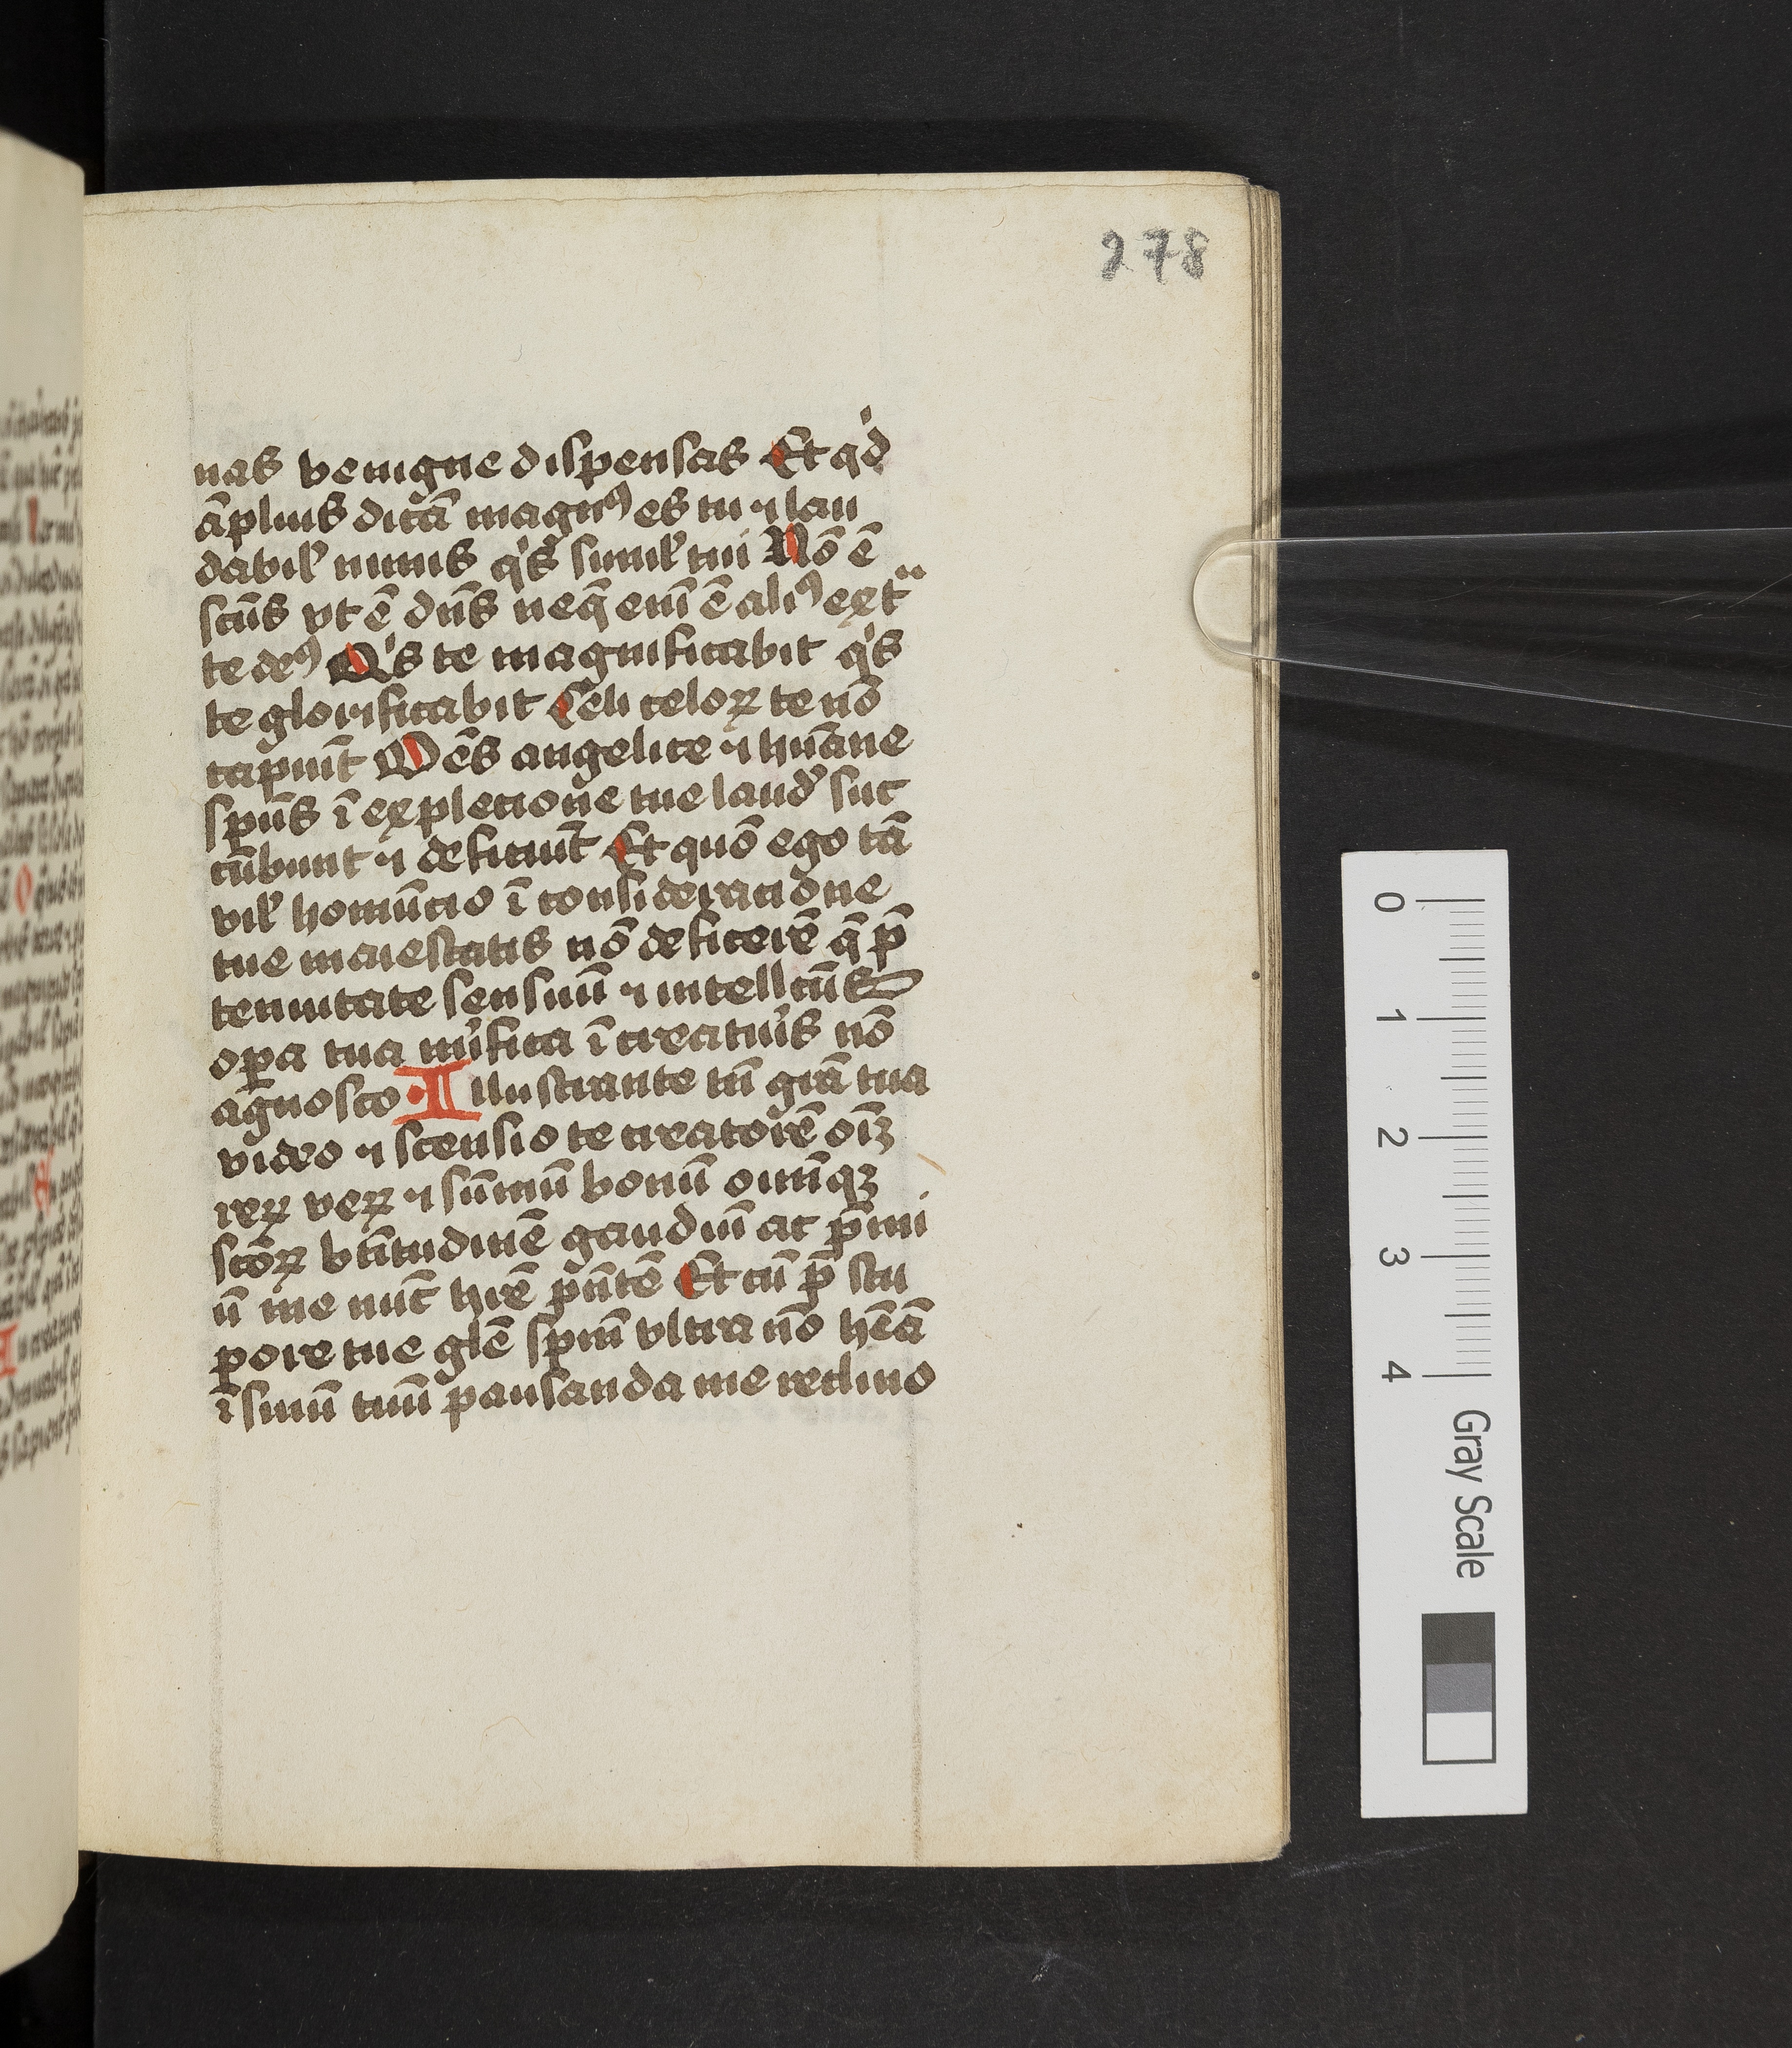 278
nas benigne dispensas Et qͥd
āplius dicā magnꝰ es tu ⁊ lau
dabil᷒ nimis qͥs simil᷒ tui Nō ē
scūs vt ē dn̄s neqꝫ eni ̄ē aliꝰ ext᷑
te deꝰ Qͥs te magnificabit qͥs
te glorificabit Celi celoꝝ te nō
capiūt Oēs angelice ⁊ hūane
spūs ī explecione tue laud᷒ suc
cūbunt ⁊ deficiūt Et quō ego tā
vil᷒ homūcio ī consideracione
tue maiestatis nō deficerē q̄ p̄
tenuitate sensuū ⁊ intellcūs
oꝑa tua mīfica ī creatur᷒s nō
agnosco · Illustrante tn̄ grā tua
video ⁊ scensio te creatorē oīꝫ
reꝝ veꝝ ⁊ sūmū bonū oīnīqꝫ
scōꝝ btītudinē gaudiū ac p̄mi
ū me nūc hic̄ p̄ntē Et cū p̄ stu
pore tue glē spm̄ vltra nō hēā
ī sinū tuū pausanda me reclino
0
1
2
3
4
Gray Scale